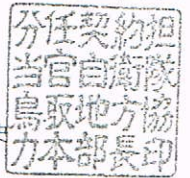 分任契約担
当官自衛隊
鳥取地方協
力本部長印